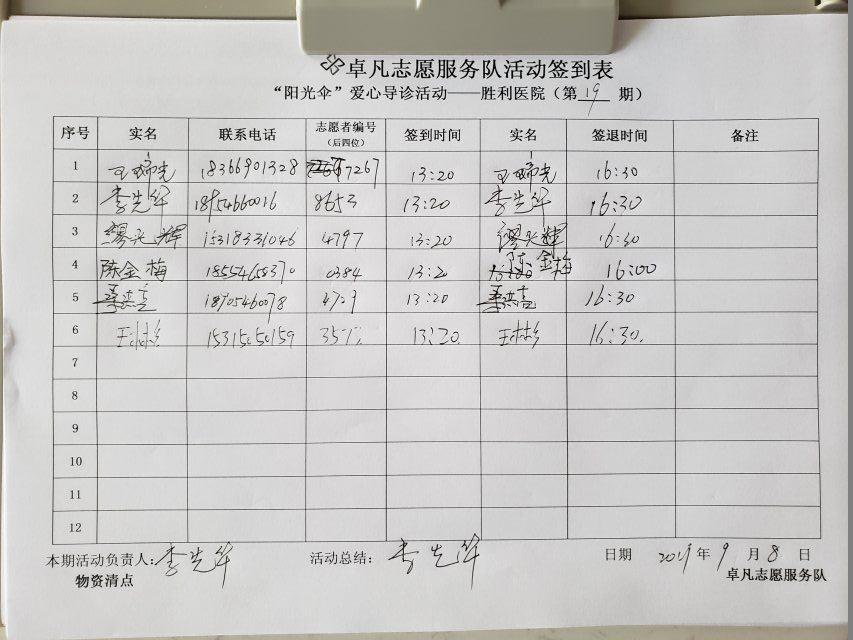 卓凡志愿服务队活动签到表
“阳光伞”爱心导诊活动——胜利医院（第 19 期）
序号 实名 联系电话 志愿者编号（后四位） 签到时间 实名 签退时间 备注
1 18366901328 7267 13:20 16:30
2 李先华 18954660016 8653 13:20 李先华 16:30
3 缪光辉 15318331046 4797 13:20 缪光辉 16:30
4 陈金梅 18554655370 0384 13:20 陈金梅 16:00
5 18905460078 13:20 16:30
6 王彬彬 15315050159 13:20. 王彬彬 16:30.
7
8
9
10
11
12
本期活动负责人：李先华 活动总结：李先华 日期 2019 年 9 月 8 日
物资清点 卓凡志愿服务队